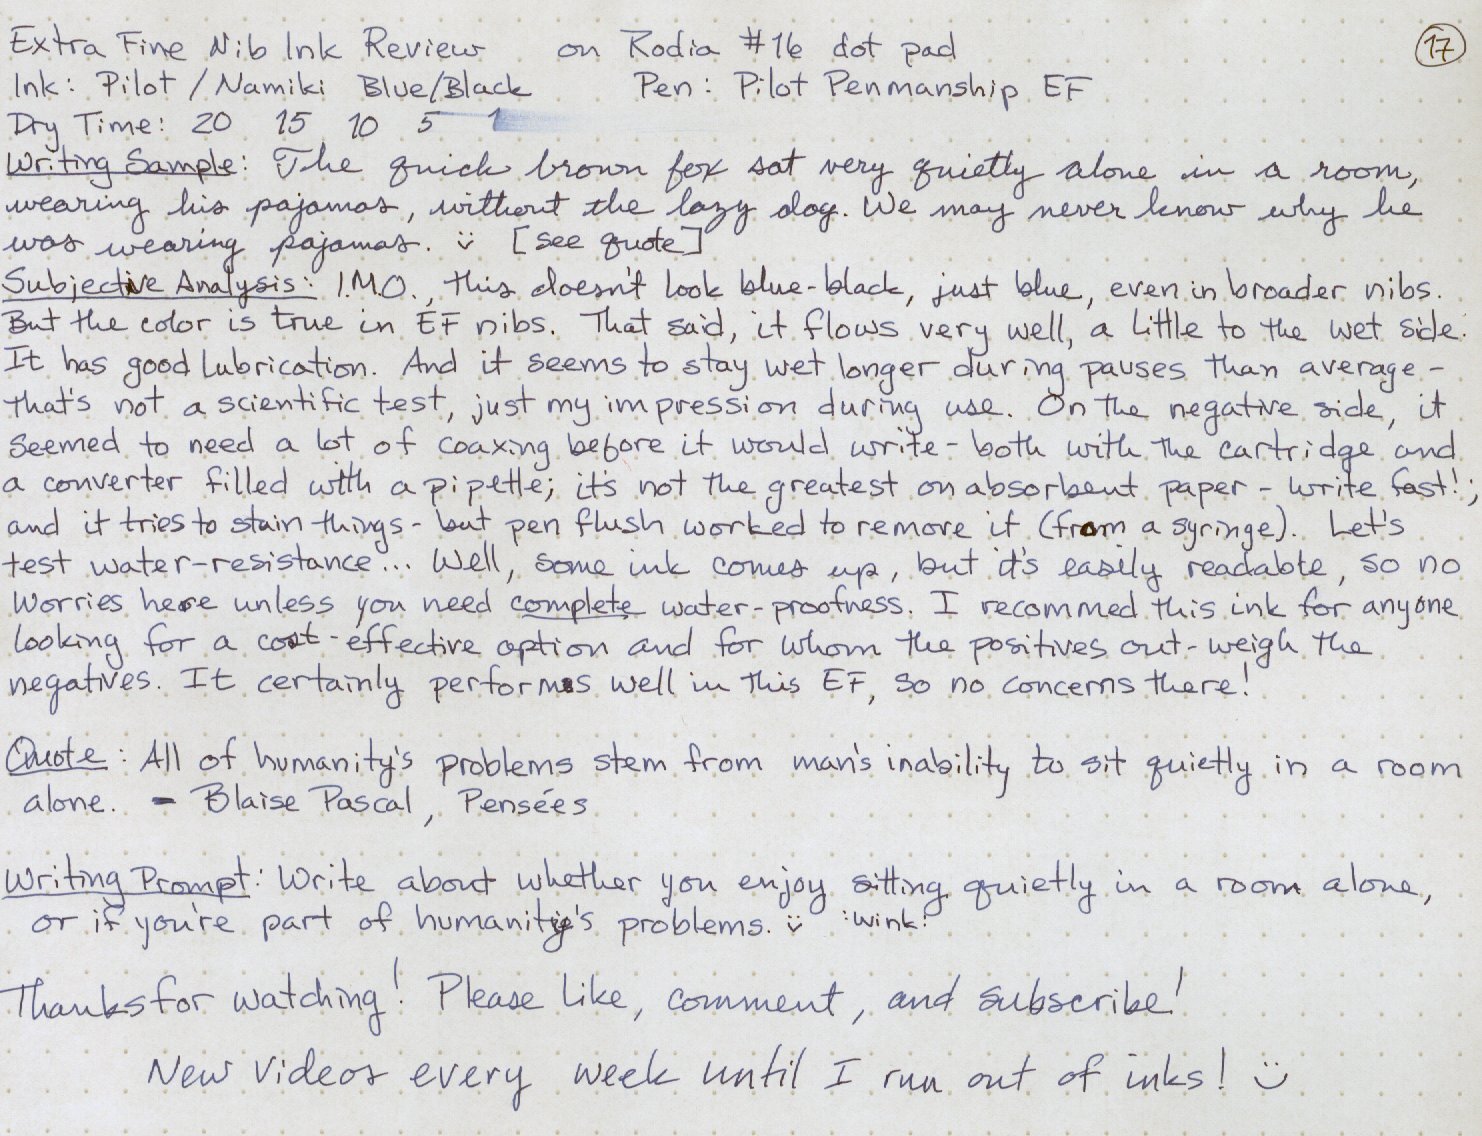 Extra Fine Nib Ink Review on Rodia #16 dot pad 17
Ink: Pilot / Namiki Blue/Black Pen: Pilot Penmanship EF
Dry Time: 20 15 10 5 1
Writing Sample: The quick brown fox sat very quietly alone in a room,
wearing his pajamas, without the lazy dog. We may never know why he
was wearing pajamas. :) [see quote]
Subjective Analysis: I.M.O., this doesn't look blue-black, just blue, even in broader nibs.
But the color is true in EF nibs. That said, it flows very well, a little to the wet side.
It has good lubrication. And it seems to stay wet longer during pauses than average -
that's not a scientific test, just my impression during use. On the negative side, it
seemed to need a lot of coaxing before it would write - both with the cartridge and
a converter filled with a pipette; it's not the greatest on absorbent paper - write fast!;
and it tries to stain things - but pen flush worked to remove it (from a syringe). Let's
test water-resistance... Well, some ink comes up, but it's easily readable, so no
worries here unless you need complete water-proofness. I recommed this ink for anyone
looking for a cost-effective option and for whom the positives out-weigh the
negatives. It certainly performs well in this EF, so no concerns there!
Quote: All of humanity's problems stem from man's inability to sit quietly in a room
alone. - Blaise Pascal, Pensées
Writing Prompt: Write about whether you enjoy sitting quietly in a room alone,
or if you're part of humanity's problems. :) :wink!
Thanks for watching! Please like, comment, and subscribe!
New videos every week until I run out of inks! :)